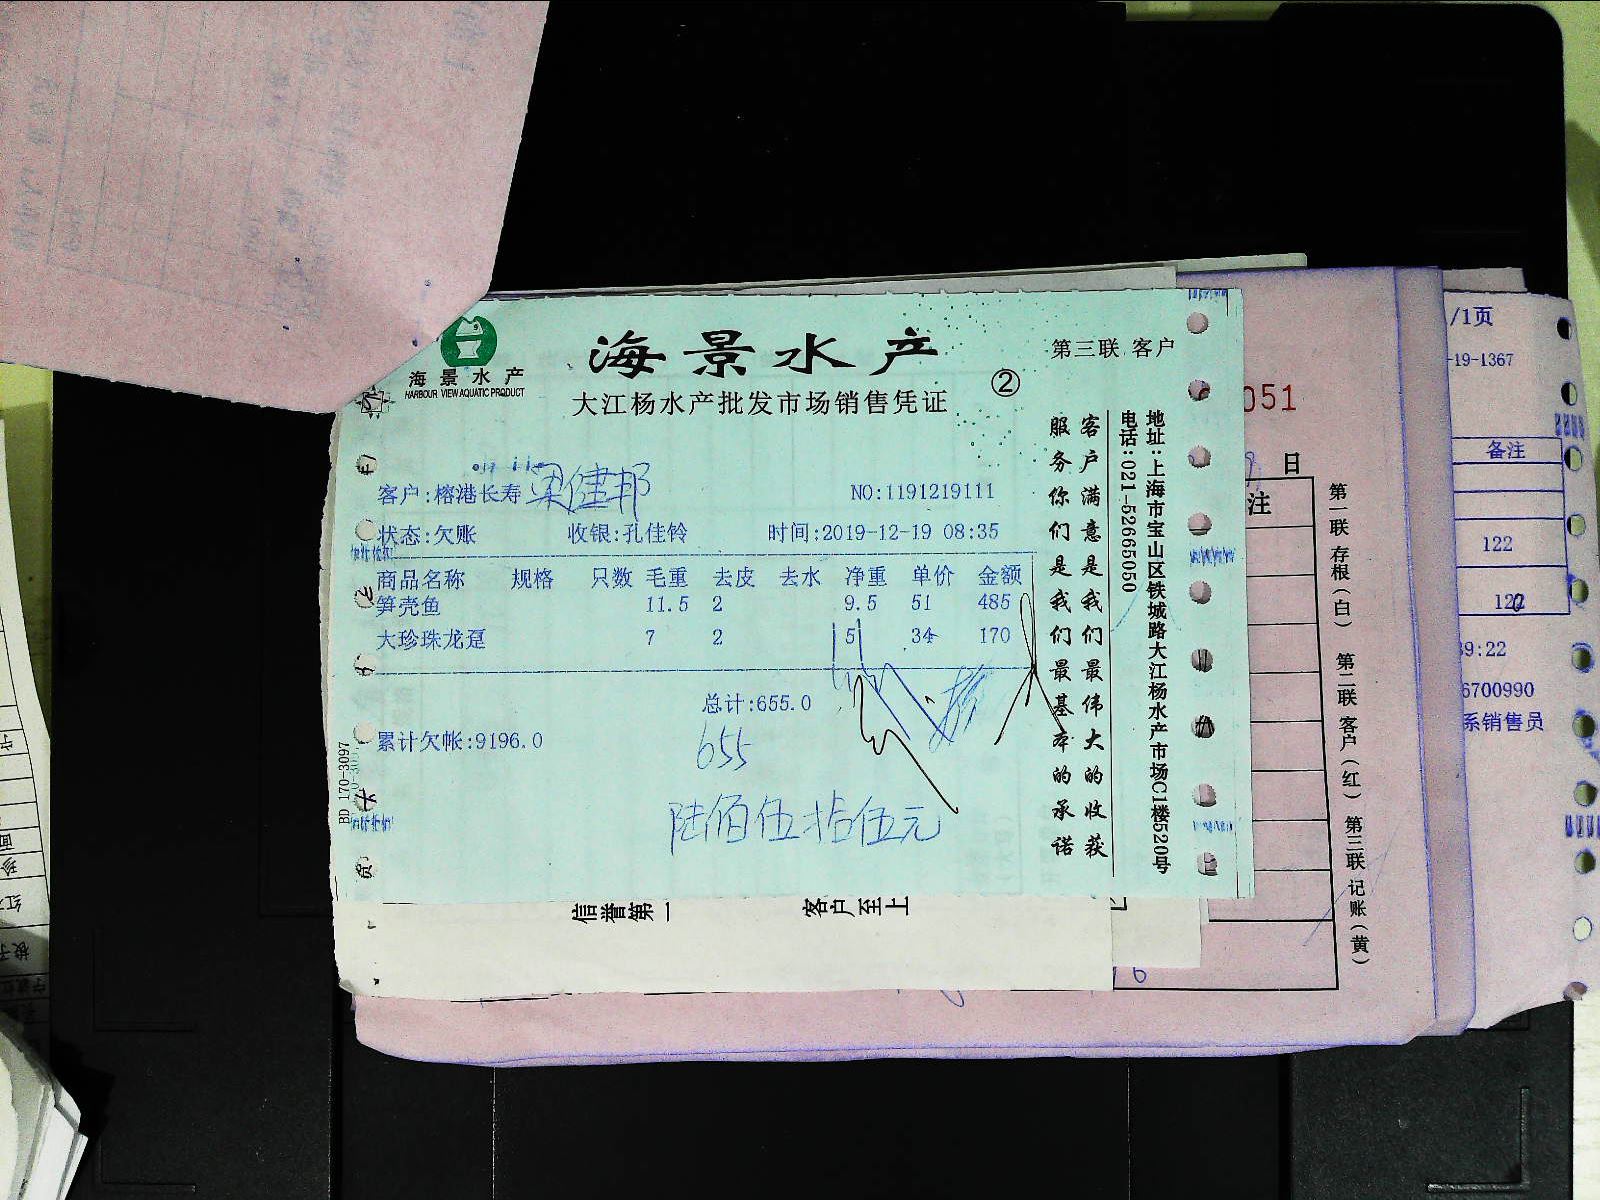 海景水产
HARBOUR VIEW AQUATIC PRODUCT
海景水产
第三联 客户
大江杨水产批发市场销售凭证
②
客户:榕港长寿 梁健邦
NO:1191219111
状态:欠账 收银:孔佳铃 时间:2019-12-19 08:35
商品名称 规格 只数 毛重 去皮 去水 净重 单价 金额
笋壳鱼 11.5 2 9.5 51 485
大珍珠龙趸 7 2 5 34 170
总计:655.0
累计欠帐:9196.0
655
陆佰伍拾伍元
客户满意是我们最伟大的收获
服务你们是我们最基本的承诺
地址:上海市宝山区铁城路大江杨水产市场C1楼520号
电话:021-52665050
BD 170-3097
信誉第一
客户至上
051
日
注
第一联 存根(白) 第二联 客户(红) 第三联 记账(黄)
/1页
-19-1367
备注
122
122
39:22
6700990
系销售员